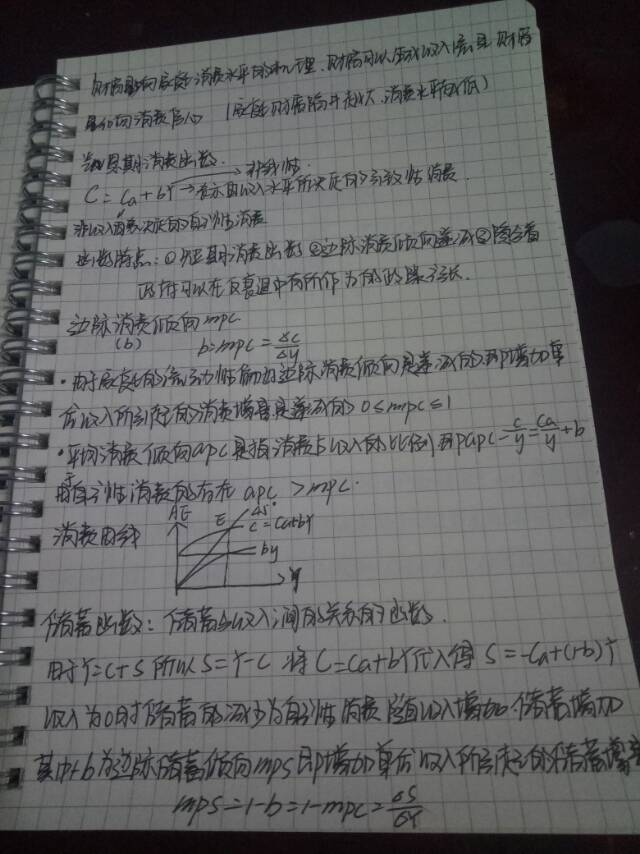 财富影响家庭消费水平的机理.财富可以生成收入,但是财富
影响消费信心 (家庭财富 越大.消费水平越低)
短期消费函数. 非线性.
C = Ca + bY → 表示由收入水平所决定的引致性消费.
非收入因素决定的自发性消费
函数特点:① 短期消费函数 ②边际消费倾向递减③隐含着
政府可以在反衰退中有所作为的政策
边际消费倾向 mpc
(b) b = mpc = ΔC/ΔY
·由于家庭的流动性 边际消费倾向是递减的即增加单
位收入所引起的消费增量是递减的 0≤mpc≤1
·平均消费倾向apc是指消费占收入的比例即apc=C/Y=Ca/Y+b
由于自发性消费的存在 apc > mpc.
消费曲线 AE E 45° C=Ca+bY bY Y
储蓄函数:储蓄与收入之间的关系的函数.
由于Y=C+S 所以S=Y-C 将C=Ca+bY代入得 S=-Ca+(1-b)Y
收入为0时储蓄的减少为自发性消费 随收入增加.储蓄增加
其中1-b为边际储蓄倾向mps即增加单位收入所引起的储蓄增
mps=1-b=1-mpc=ΔS/ΔY